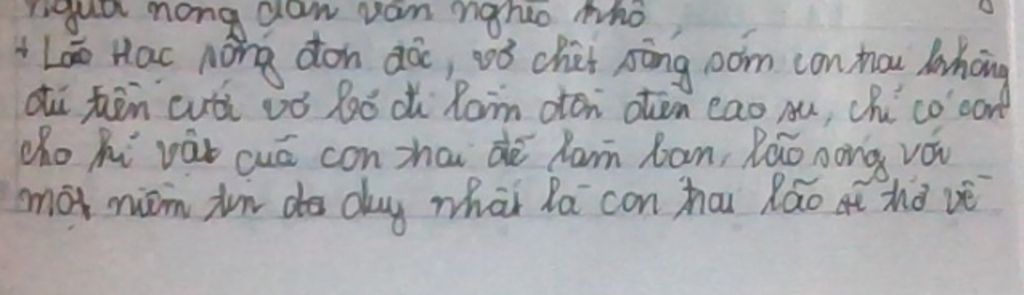 người nông dân vẫn nghèo khổ
+ Lão Hạc sống đơn độc, vợ chết sống sớm con trai không
đủ tiền cưới vợ bỏ đi làm đồn điền cao su, chỉ có con
chó kỉ vật của con trai để làm bạn, lão sống với
một niềm tin duy nhất là con trai lão sẽ trở về